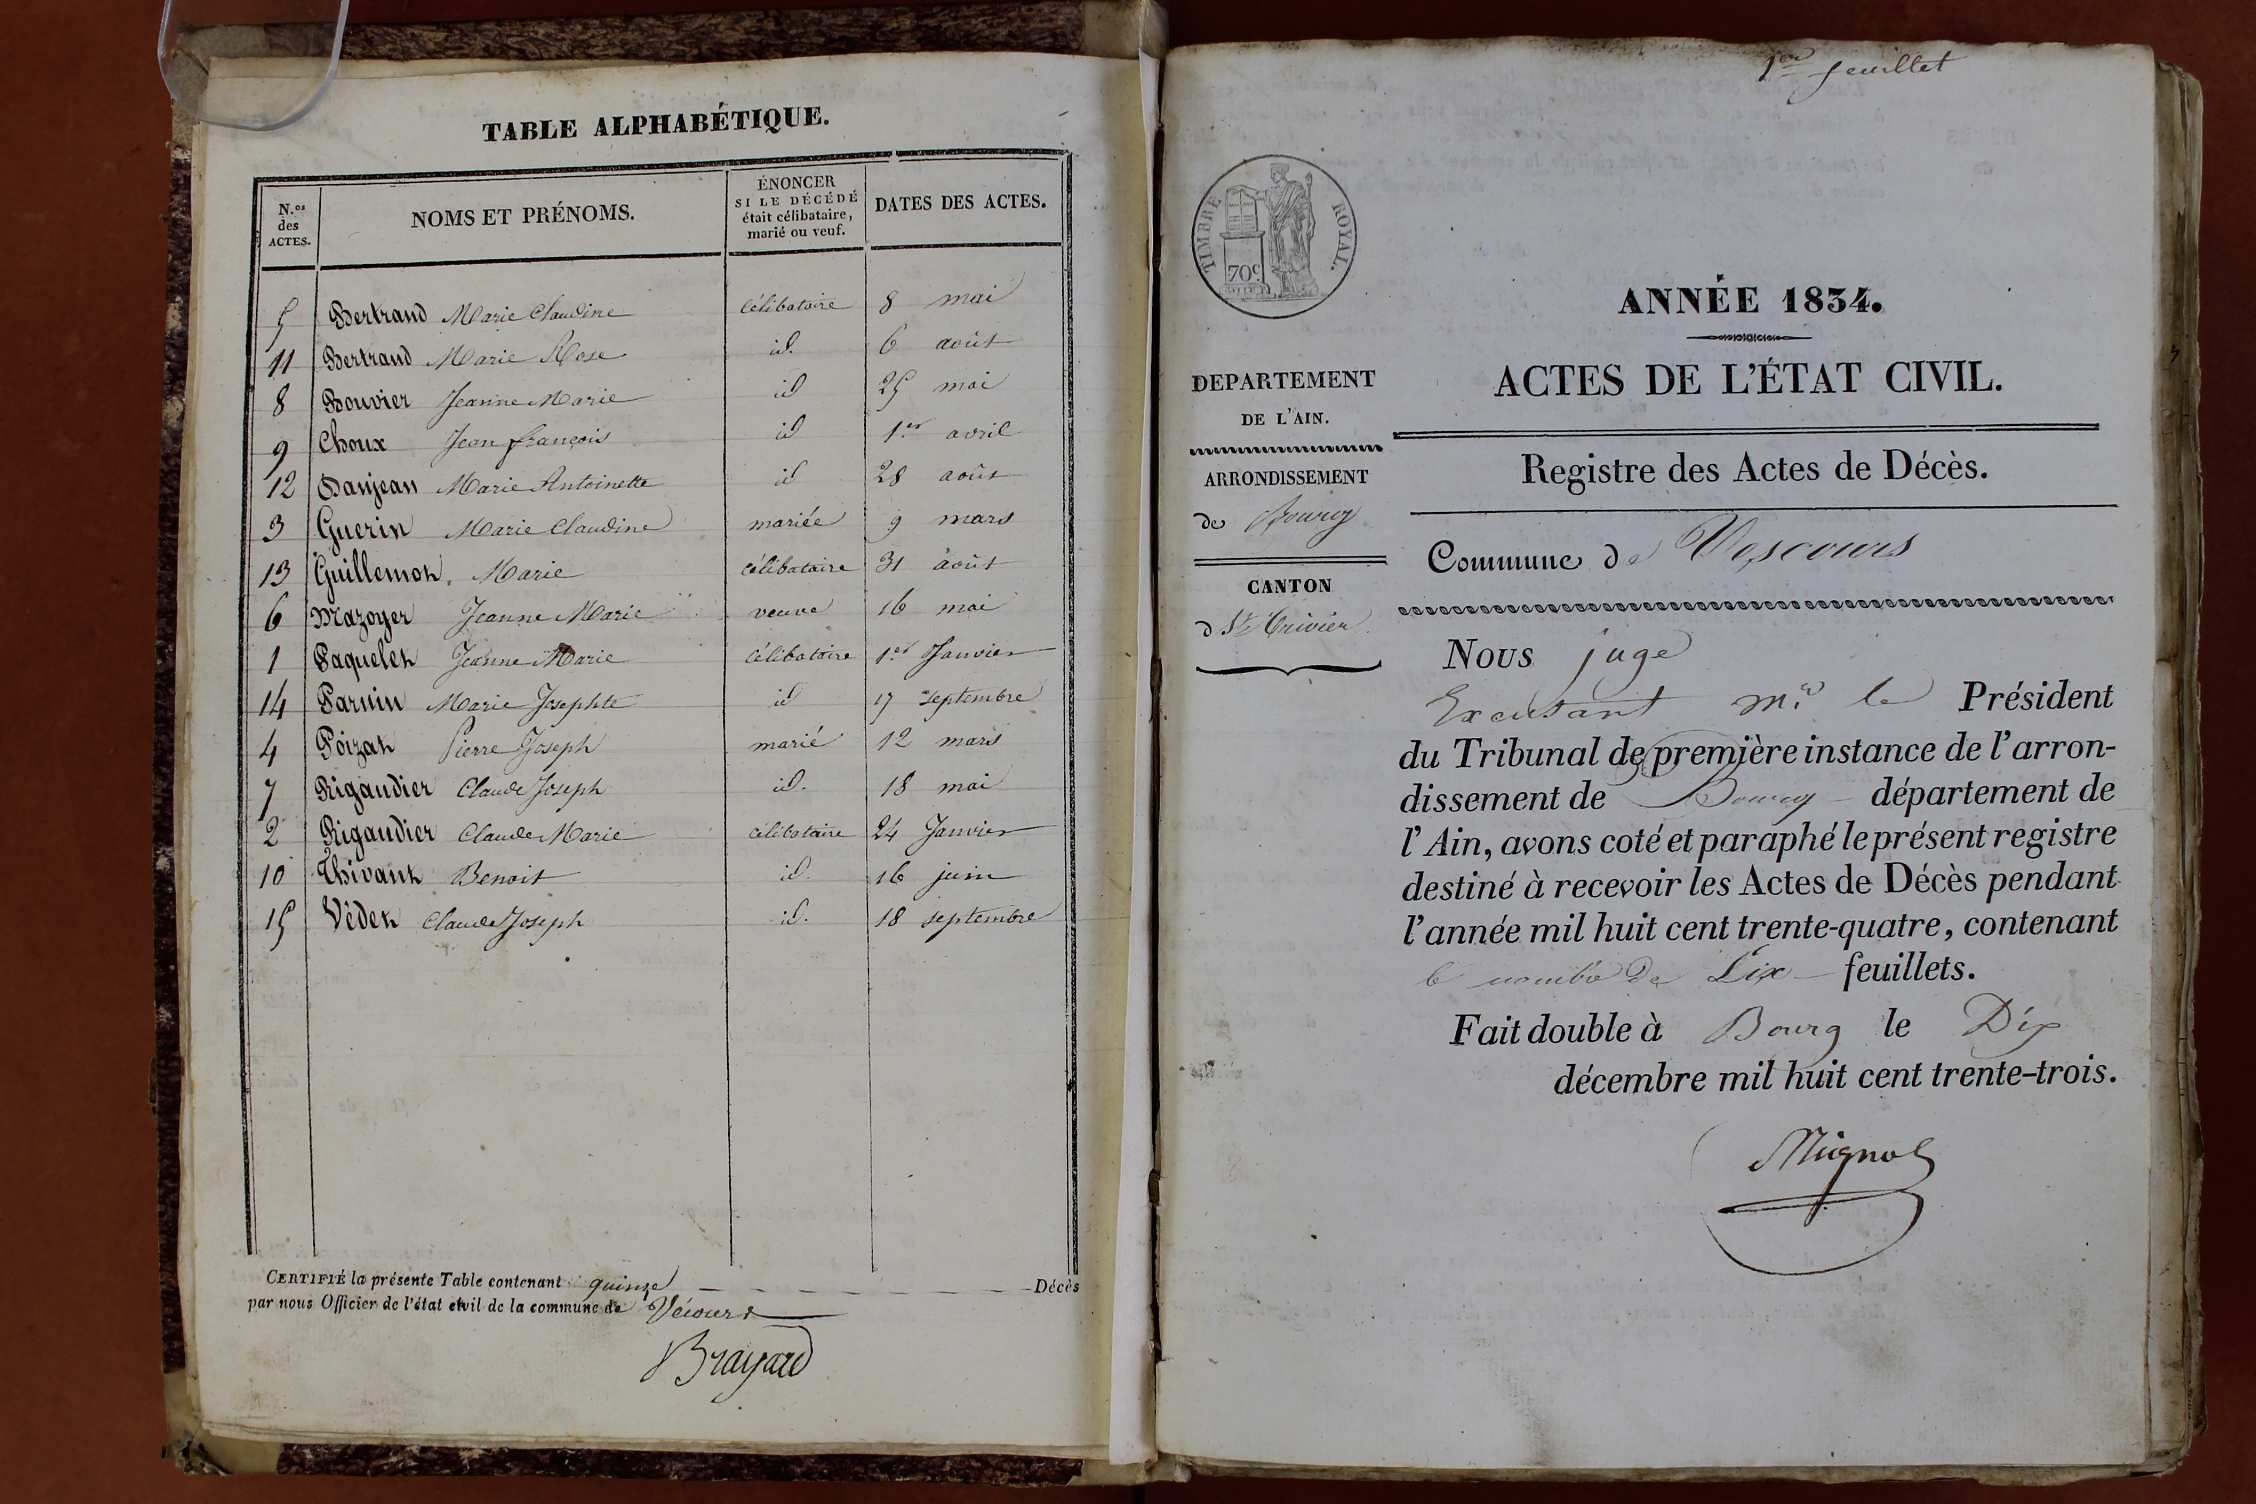 TABLE ALPHABÉTIQUE.
N.os des ACTES.
NOMS ET PRÉNOMS.
ÉNONCER SI LE DÉCÉDÉ était célibataire, marié ou veuf.
DATES DES ACTES.
5 Bertrand Marie Claudine célibataire 8 mai
11 Bertrand Marie Rose id. 6 août
8 Bouvier Jeanne Marie id 25 mai
9 Choux Jean françois id 1.er avril
12 Danjean Marie Antoinette id 28 août
3 Guerin Marie Claudine mariée 9 mars
13 Guillemot. Marie célibataire 31 août
6 Mazoyer Jeanne Marie veuve 16 mai
1 Paquelet Jeanne Marie célibataire 1.er Janvier
14 Parnin Marie Josephte id 17 septembre
4 Poizat Pierre Joseph marié 12 mars
7 Rigaudier Claude Joseph id. 18 mai
2 Rigaudier Claude Marie célibataire 24 Janvier
10 Thivant Benoit id. 16 juin
15 Vêdet Claude Joseph id. 18 septembre
CERTIFIÉ la présente Table contenant quinze Décès
par nous Officier de l'état civil de la commune de Vécours
Brayard
1er feuillet
TIMBRE ROYAL.
70c
ANNÉE 1834.
ACTES DE L'ÉTAT CIVIL.
Registre des Actes de Décès.
DEPARTEMENT
DE L'AIN.
ARRONDISSEMENT
de Bourg
CANTON
d St Trivier
Commune de Vescours
Nous juge
Excusant Mr. le Président
du Tribunal de première instance de l'arron-
dissement de Bourg département de
l'Ain, avons coté et paraphé le présent registre
destiné à recevoir les Actes de Décès pendant
l'année mil huit cent trente-quatre, contenant
le nombre de Six feuillets.
Fait double à Bourg le Dix
décembre mil huit cent trente-trois.
Mignot